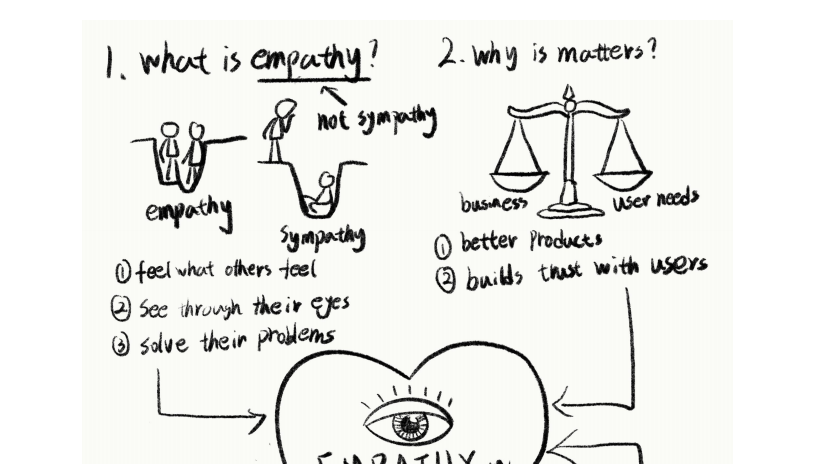 1. what is empathy?
not sympathy
empathy
sympathy
① feel what others feel
② see through their eyes
③ solve their problems
2. why is matters?
business
user needs
① better products
② builds trust with users
EMPATHY in